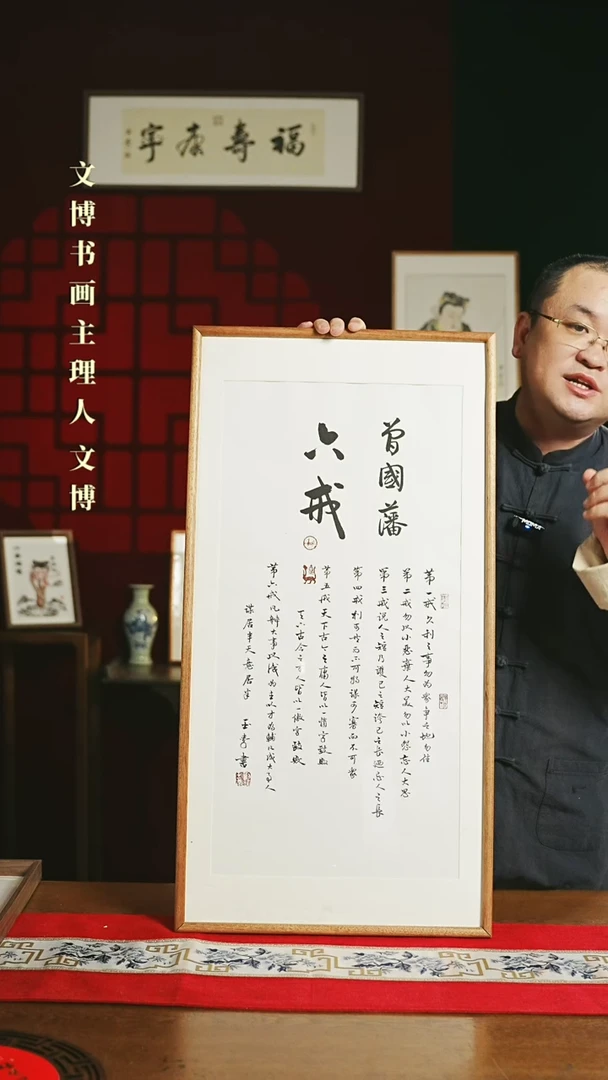 福壽康寧
文博书画主理人文博
曾國藩
六戒
第一戒久利之事勿为众争之地勿往
第二戒勿以小恶弃人大美勿以小怨忘人大恩
第三戒说人之短乃護己之短誇己之長迺忌人之長
第四戒利可共而不可独谋可寡而不可众
第五戒天下古今之庸人皆以一惰字致败
天下古今之才人皆以一傲字致败
第六戒凡辦大事以识为主以才为辅凡成大事人
谋居半天意居半